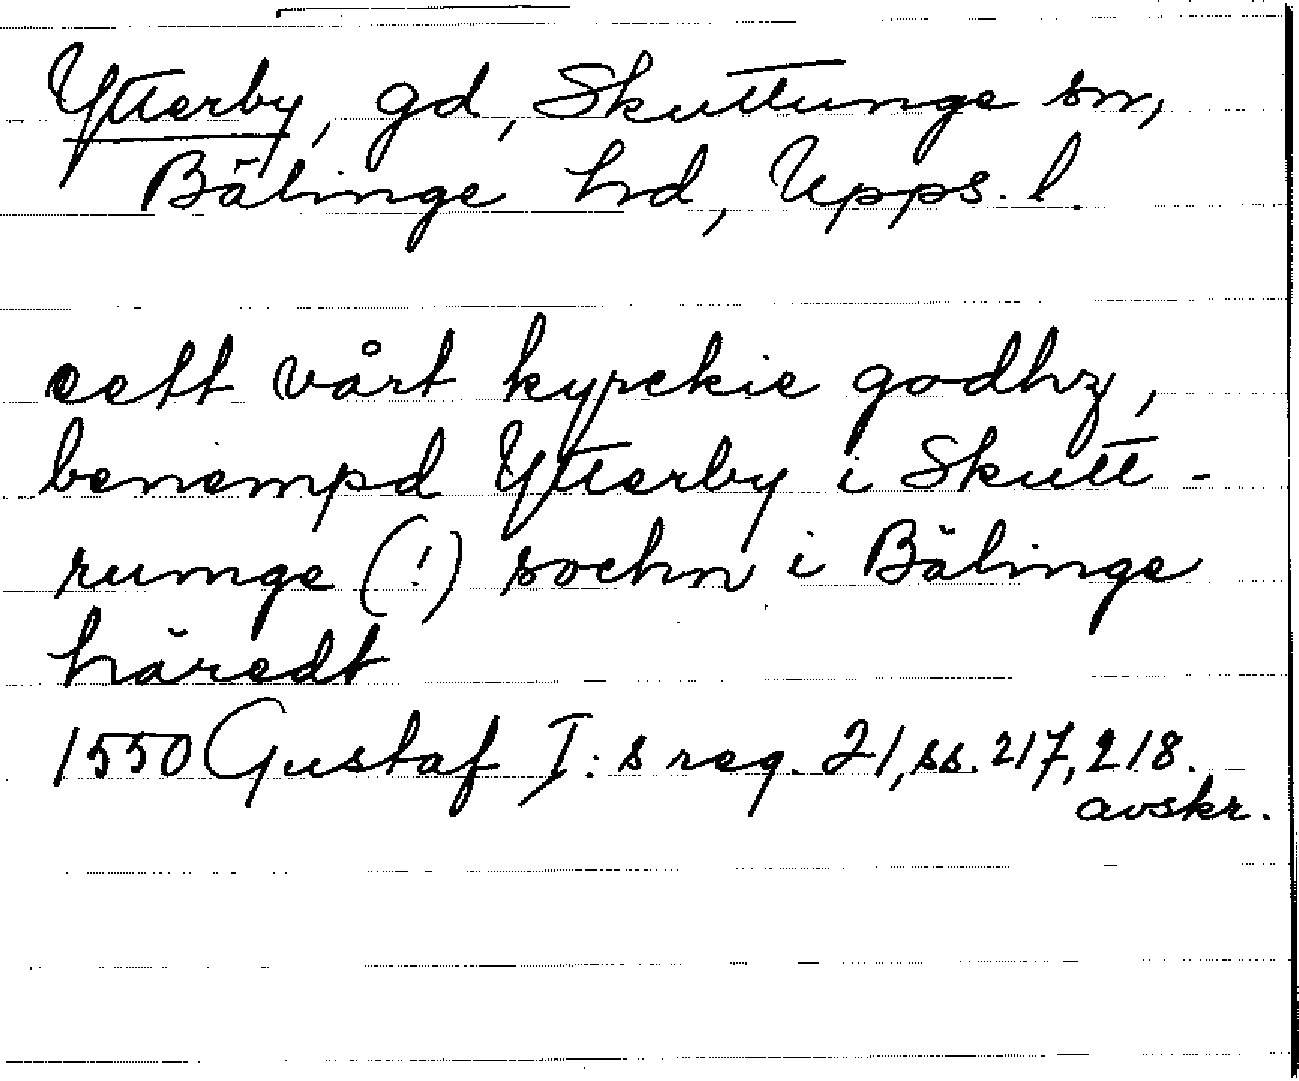 Ytterby, gd, Skuttunge sn,
Bälinge hd, Upps. l.
eett vårt kyrckie godhz,
benempd Ytterby i Skutt-
runge (!) sochn i Bälinge
häredt
1550 Gustaf I:s reg. 21, ss. 217, 218.
avskr.